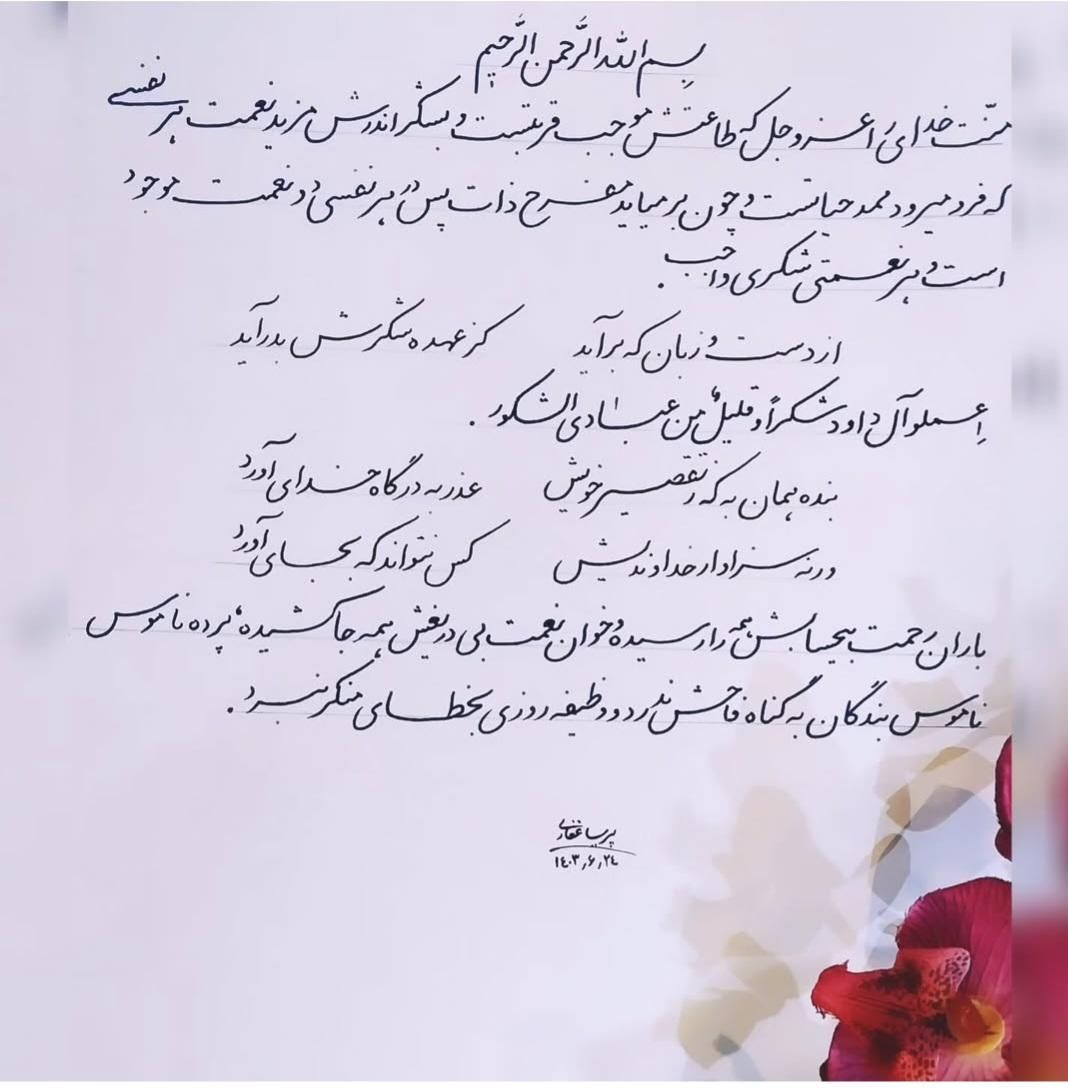 بِسم الله الرَّحمن الرَّحیم
منّت خدای را عز و جل که طاعتش موجب قربتست و بشکر اندرش مزید نعمت هر نفسی
که فرو میرود ممد حیاتست و چون بر میاید مفرح ذات پس در هر نفسی دو نعمت موجود
است و بر نعمتی شکری واجب.
از دست و زبان که برآید کز عهده شکرش بدرآید
اِعملو آل داود شکراً و قلیلٌ مِن عبادی الشکور.
بنده همان به که ز تقصیر خویش عذر به درگاه خدای آورد
ورنه سزاوار خداوندیش کس نتواند که بجای آورد
باران رحمت بیحسابش همه را رسیده و خوان نعمت بی دریغش همه جا کشیده، پرده ناموس
ناموس بندگان به گناه فاحش ندرد و وظیفه روزی بخطای منکر نبرد.
پریسا غفاری
۱۴۰۳٫۶٫۲۴